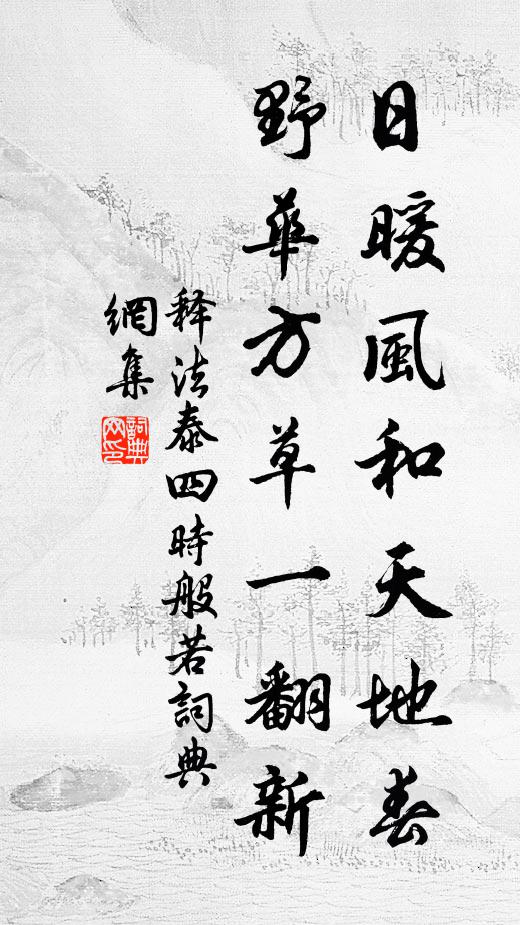 日暖風和天地春
野華方草一翻新
释法泰四時般若詞典
網集
詞典
网印